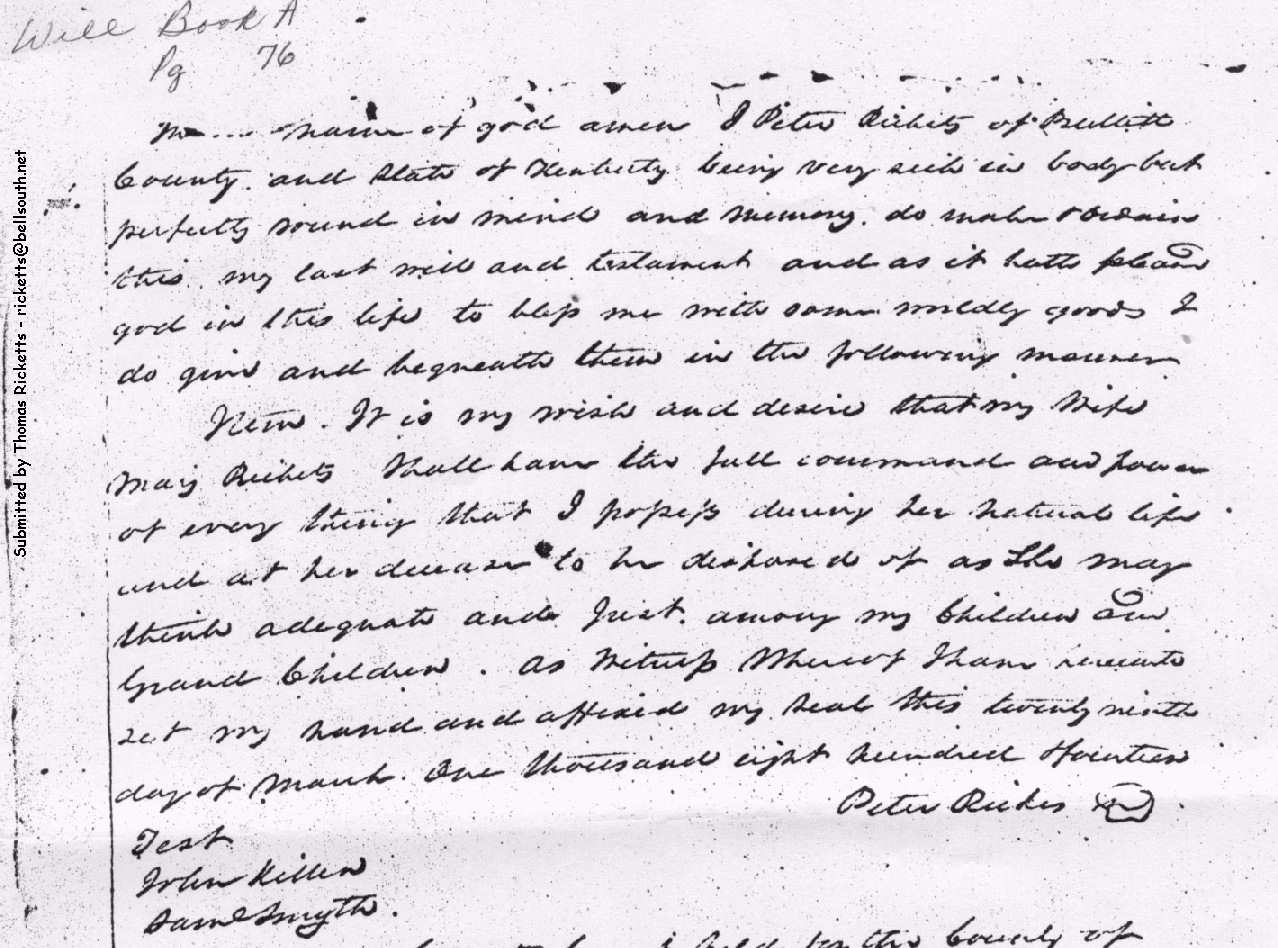 Will Book A
Pg 76
name of god amen I Peter Rickets of Bullitt
County. and State of Kentucky being very sick in body but
perfectly sound in mind and memory. do make & ordain
this my last will and testament and as it hath pleased
god in this life to bless me with some worldly goods I
do give and bequeath them in the following manner
Item. It is my wish and desire that my Wife
Mary Rickets Shall have the full command and power
of every thing that I possess during her natural life
and at her decease to be disposed of as She may
think adequate and Just. among my Children and
Grand Children. As Witness Whereof I have hereunto
set my hand and affixed my seal this twenty ninth
day of March. One thousand eight hundred & fourteen
Peter Rickets
Test
John Killen
Saml Smyth.
held for the County of
Submitted by Thomas Ricketts - ricketts@bellsouth.net